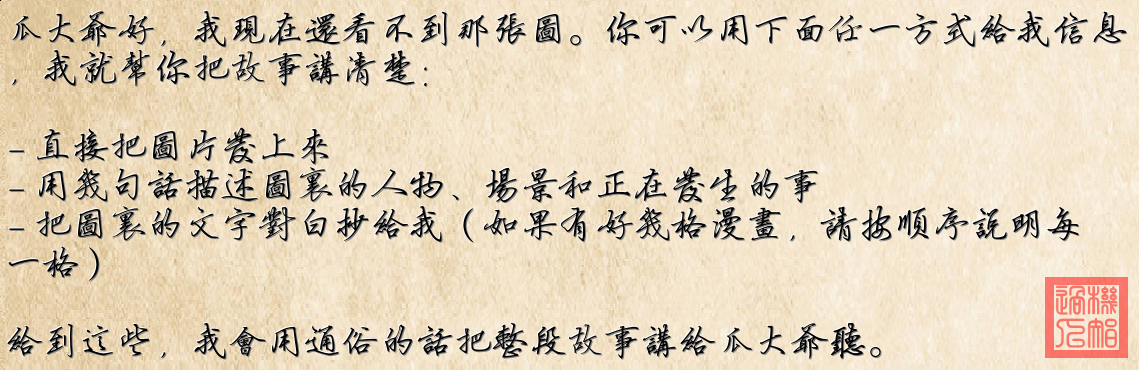 瓜大爺好，我現在還看不到那張圖。你可以用下面任一方式給我信息
，我就幫你把故事講清楚：
- 直接把圖片發上來
- 用幾句話描述圖裏的人物、場景和正在發生的事
- 把圖裏的文字對白抄給我（如果有好幾格漫畫，請按順序說明每
一格）
給到這些，我會用通俗的話把整段故事講給瓜大爺聽。